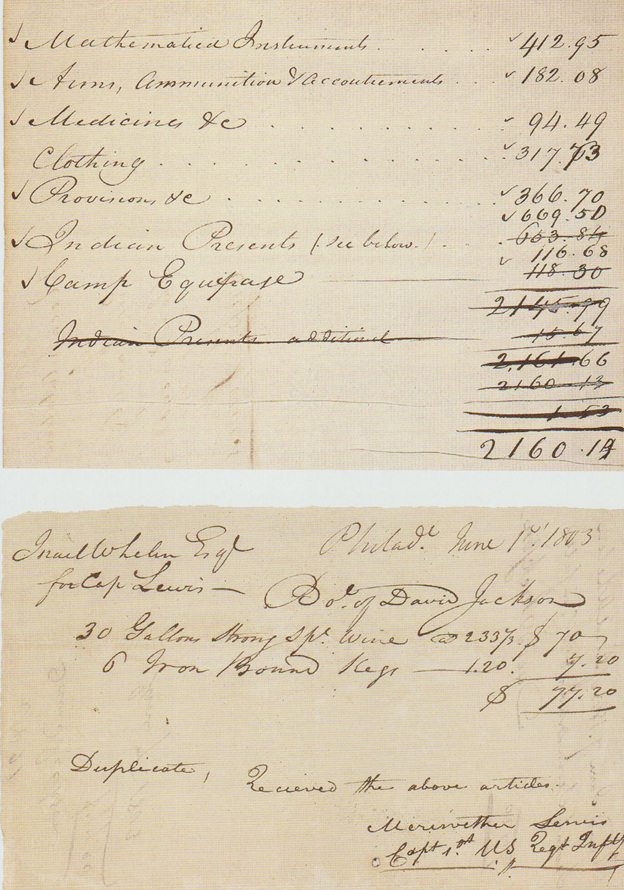 ✓ Mathematical Instruments . . . . . ✓ 412.95
✓ Arms, Ammunition & Accoutrements . . . ✓ 182.08
✓ Medicines &c . . . . . . . . . ✓ 94.49
Clothing . . . . . . . . . . . ✓ 317.73
✓ Provisions &c . . . . . . . . . . ✓ 366.70
✓ 669.50
✓ Indian Presents (see below.) . . . 653.84
✓ 116.68
✓ Camp Equipage 118.30
2145.99
Indian Presents additional 15.67
2,161.66
2160.13
1.53
2160.14
Israel Whelen Esqr Philada. June 1st. 1803
for Cap Lewis— Bot. of David Jackson
30 Gallons Strong Spt. Wine @ 233⅓ $ 70
6 Iron Bound Kegs — 1.20. 7.20
$ 77.20
Duplicate, Recieved the above articles.
Meriwether Lewis
Capt. 1st. US Regt Infty